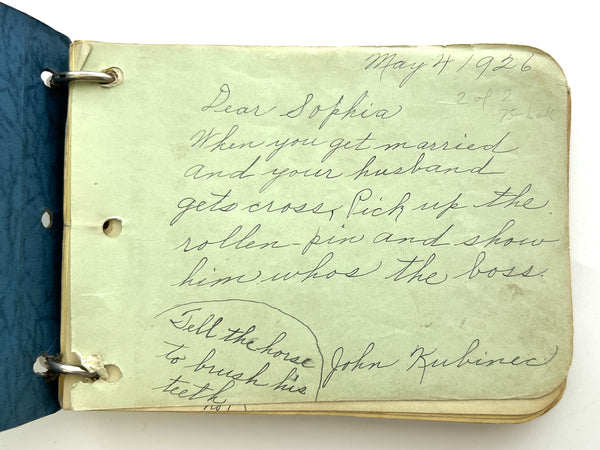 May 4 1926
2 of 2
Dear Sophia
When you get married
and your husband
gets cross, Pick up the
rollen-pin and show
him whos the boss.
Tell the horse
to brush his
teeth
John Kubinec